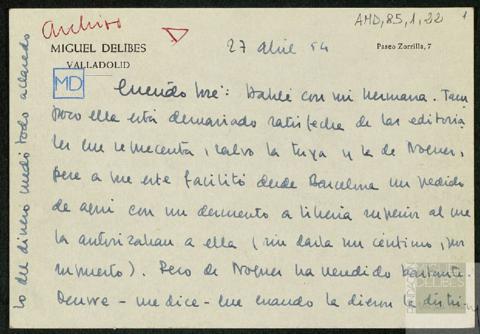 Archivo
AMD,85,1,22
1
MIGUEL DELIBES
VALLADOLID
27 abril 54
Paseo Zorrilla, 7
MD
Querido José: Hablé con mi hermana. Tam
poco ella está demasiado satisfecha de las editoria
les que representa, salvo la tuya y la de Noguer,
pero a me este facilitó desde Barcelona un pedido
de aquí con un descuento a librería superior al que
la autorizaban a ella (sin darla un céntimo, por
supuesto). Pero de Noguer ha vendido bastante.
Ocurre - me dice - que cuando la dieron la distri
lo del dinero quedó todo aclarado
FUNDACIÓN
MIGUEL
DELIBES